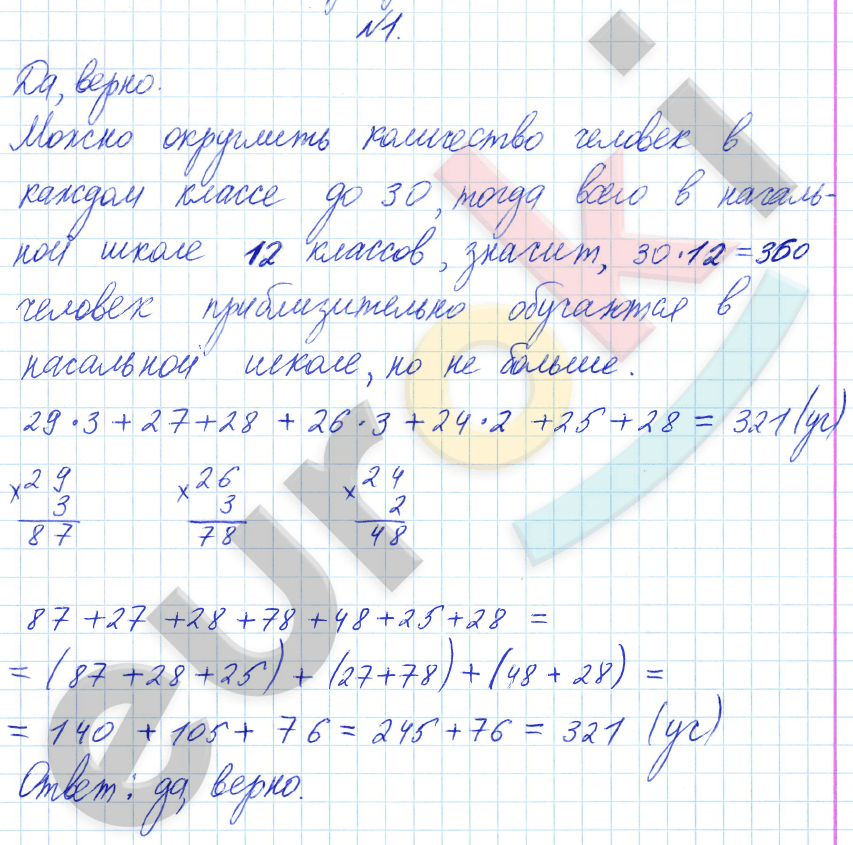 №1.
Да, верно.
Можно округлить количество человек в
каждом классе до 30, тогда всего в началь-
ной школе 12 классов, значит, 30·12=360
человек приблизительно обучаются в
начальной школе, но не больше.
29·3+27+28+26·3+24·2+25+28=321(уч)
×29 3 87 ×26 3 78 ×24 2 48
87+27+28+78+48+25+28=
=(87+28+25)+(27+78)+(48+28)=
=140+105+76=245+76=321 (уч)
Ответ: да, верно.
euroki